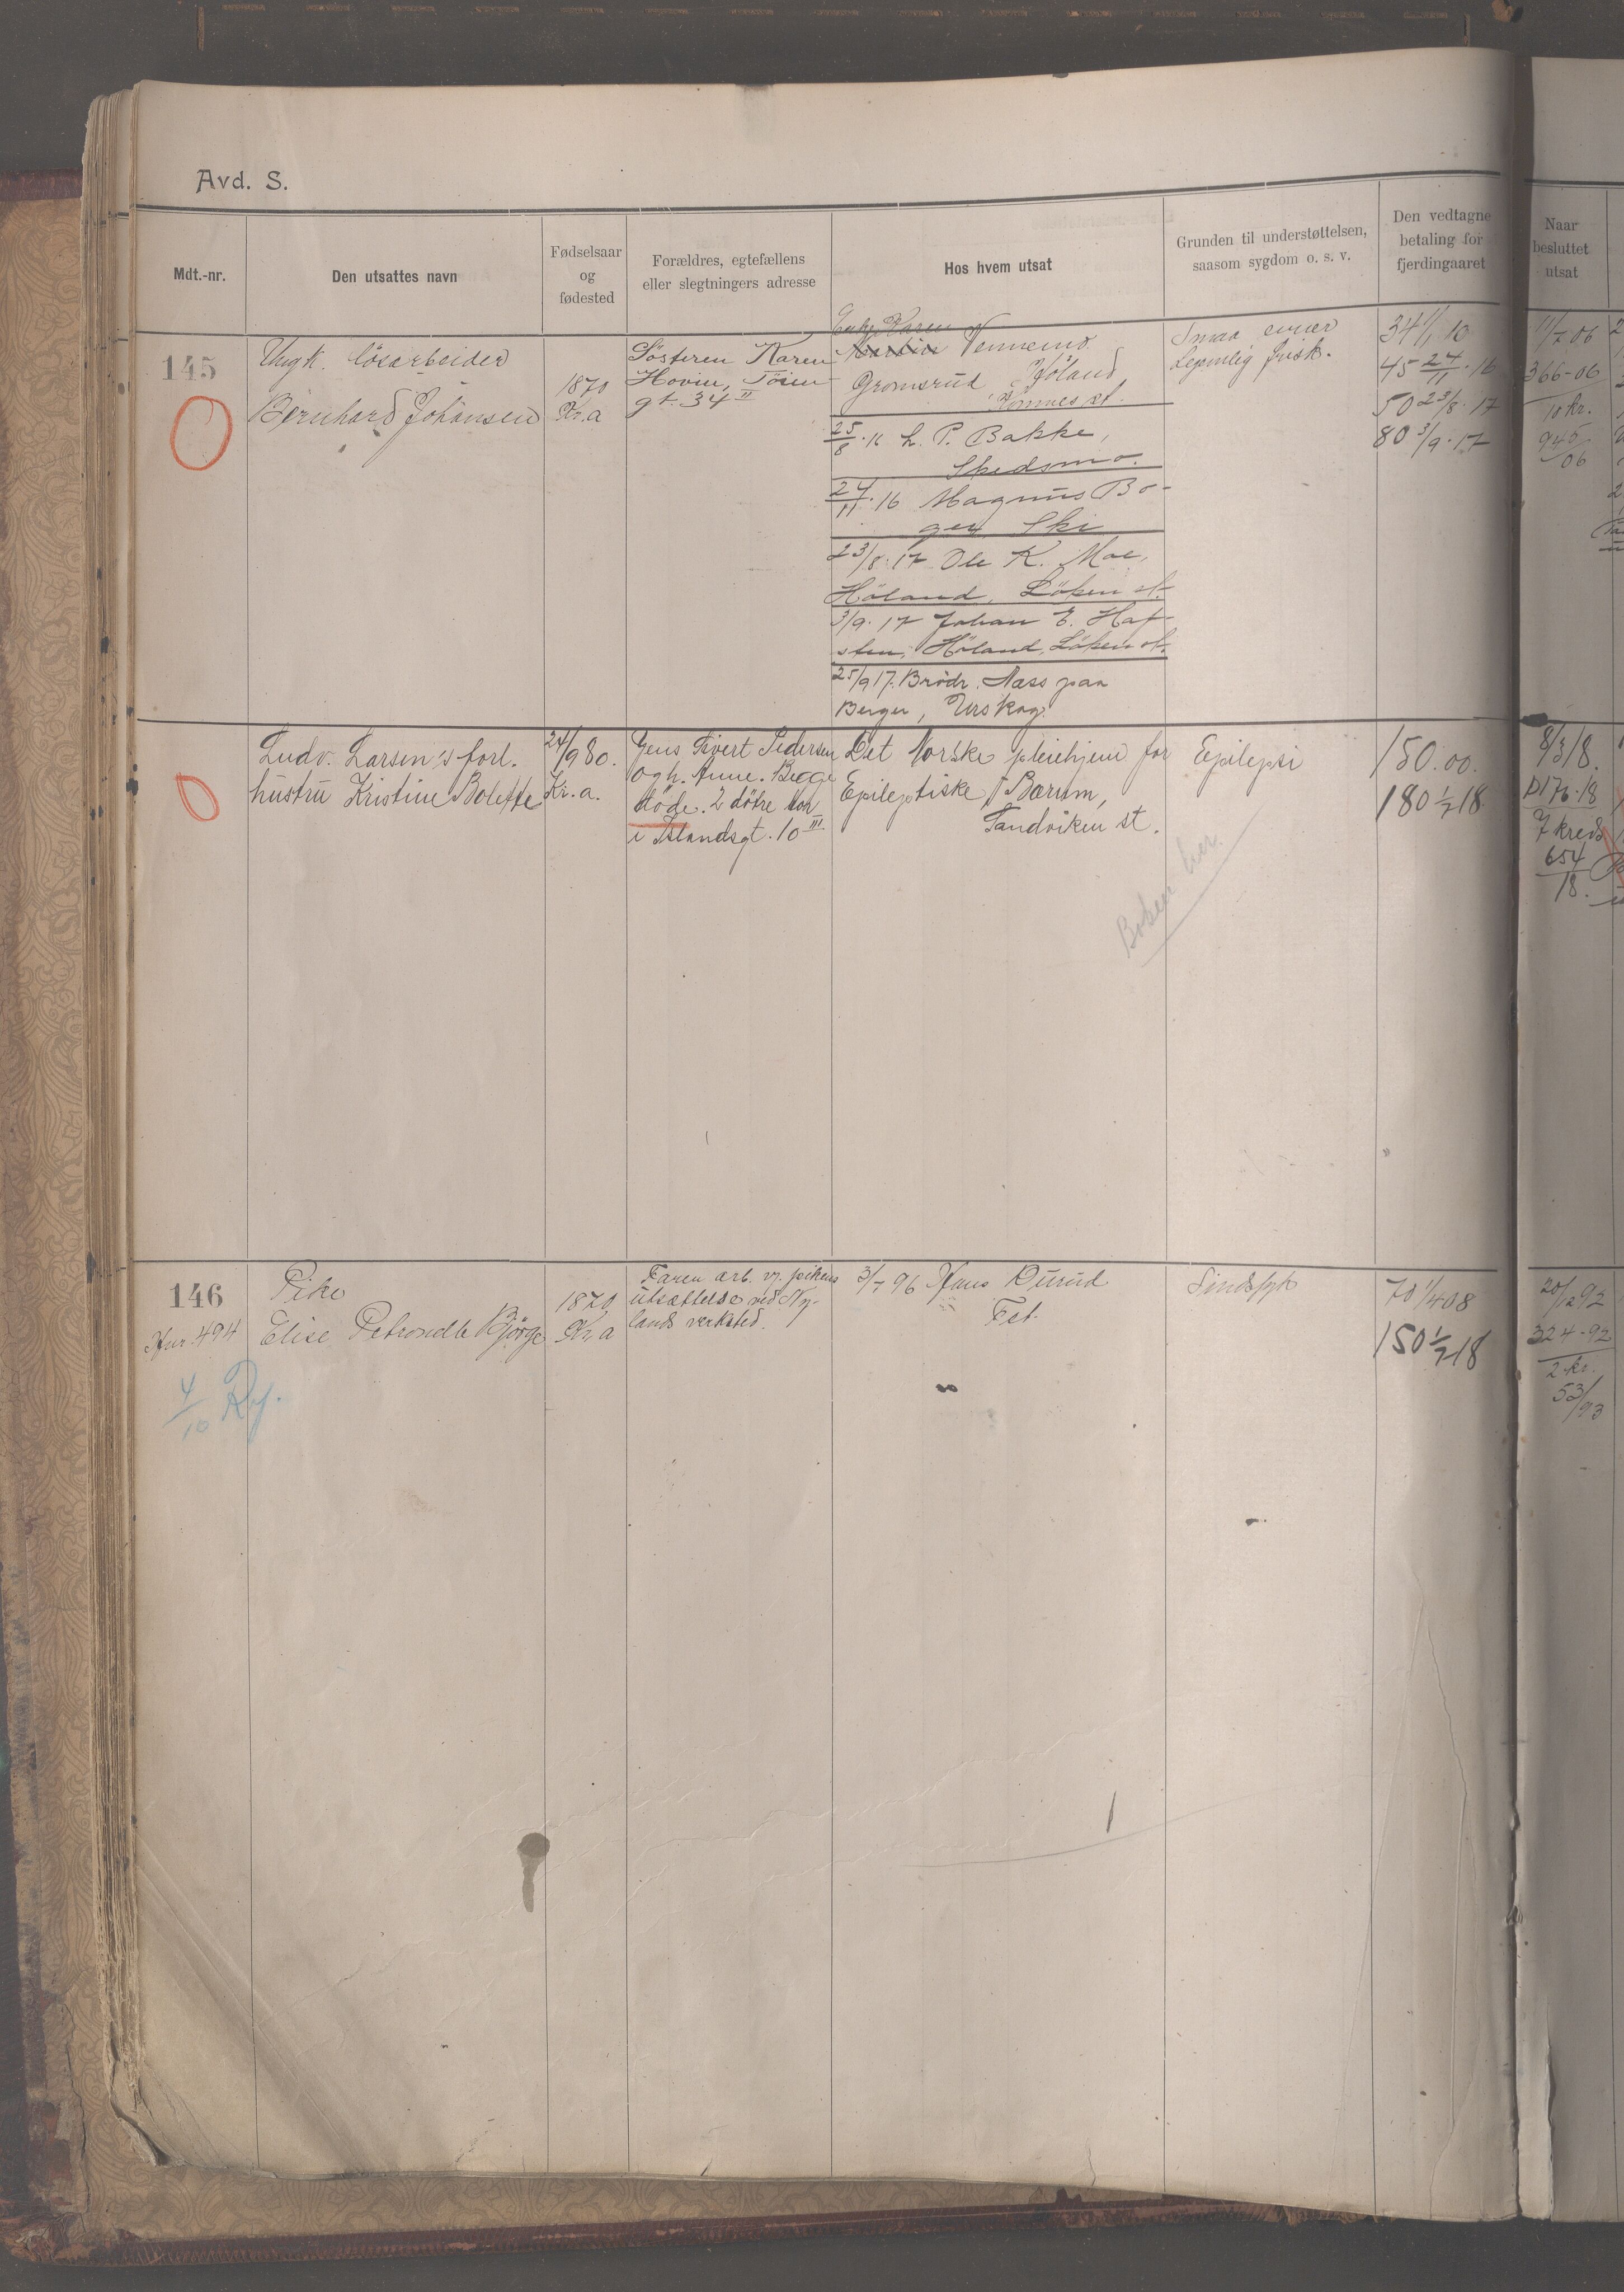 Avd. S.
Mdt.-nr.
Den utsattes navn
Fødselsaar
og
fødested
Forældres, egtefællens
eller slegtningers adresse
Hos hvem utsat
Grunden til understøttelsen,
saasom sygdom o. s. v.
Den vedtagne
betaling for
fjerdingaaret
Naar
besluttet
utsat
145
Ungk. lösarbeider
Bernhard Johansen
1870
Kr.a
Søsteren Karen
Hovin, Töien
gt. 34 II
Enke Karen
Vennemo
Gromsrud Höland
st.
25/8.16 h. P. Bakke,
Skedsmo.
24/11.16 Magnus Bo-
ger Ski
23/8.17 Ole K. Moe,
Höland, Löken st.
3/9.17 Johan E. Haf-
sten, Höland, Löken st.
25/9 17. Brødr. Næss paa
Berger, Urskog.
Smaa evner
Legemlig frisk.
34 1/1 10
45 24/11.16
50 23/8.17
80 3/9.17
11/7 06
366-06
10 kr.
945/06
Ludv. Larsen's forl.
hustru Kristine Bolette
24/9 80.
Kr.a.
Jens Sivert Pedersen
og h. Anne. Begge
döde. 2 dötre bor
i Islandsgt. 10 III.
Det Norske pleiehjem for
Epileptiske i Bærum,
Sandviken st.
Boken her.
Epilepsi
150.00.
180 1/7 18
8/3/18.
D176.18
7 kreds
654/18.
146
Hnr. 494
4/10
Pike
Elise Petronelle Björge
1870
Kr.a
Faren arb. v. pikens
utsættelse ved Ny-
lands verksted.
3/7 96 Hans Durud
Fet.
Sindssyk
70 1/4 08
150 1/7 18
20/12 92
324-92
2 kr.
53/93